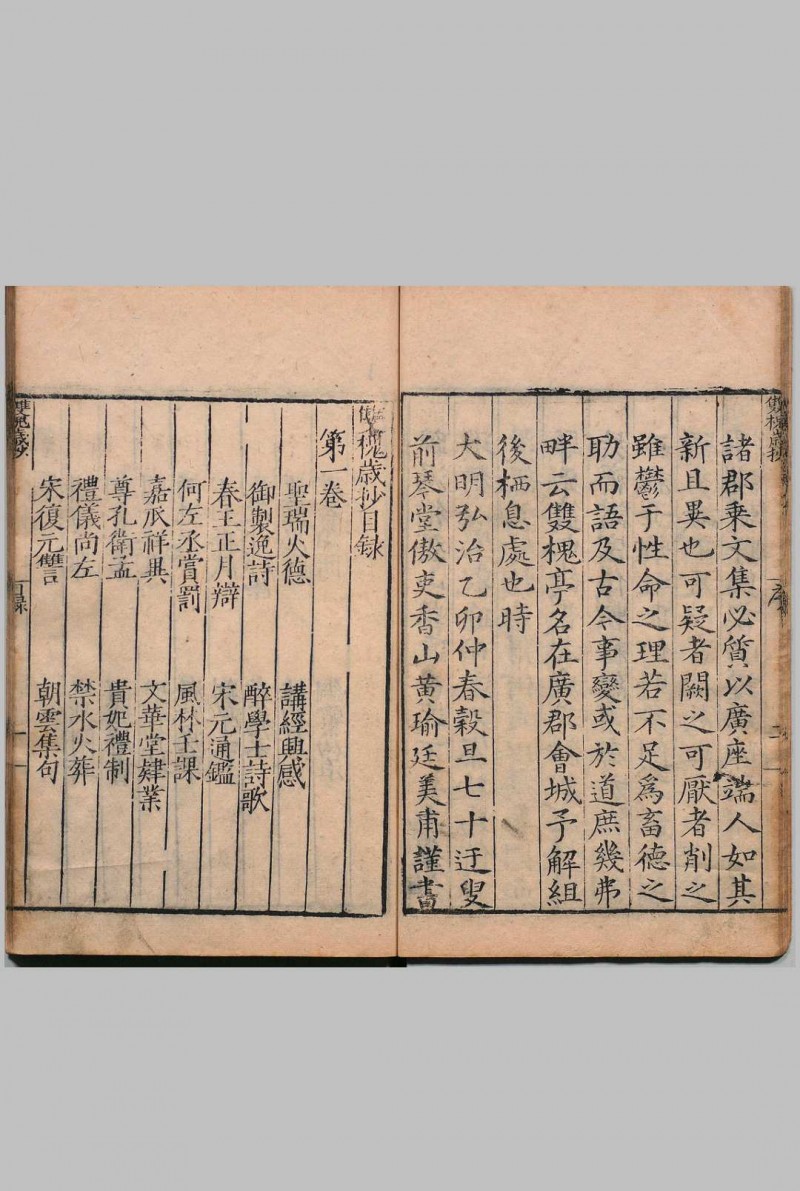 諸郡乘文集必質以廣座端人如其
新且異也可疑者闕之可厭者削之
雖鬱于性命之理若不足為畜德之
助而語及古今事變或於道庶幾弗
畔云雙槐亭名在廣郡會城予解組
後栖息處也時
大明弘治乙卯仲春穀旦七十迂叟
前琴堂傲吏香山黃瑜廷美甫謹書
雙槐歲抄
序
二
雙槐歲抄目録
第一卷
聖瑞火德 講經興感
御製逸詩 醉學士詩歌
春王正月辯 宋元通鑑
何左丞賞罰 風林壬課
嘉瓜祥異 文華堂肄業
尊孔衛孟 貴妃禮制
禮儀尚左 禁水火葬
宋復元讐 朝雲集句
雙槐歲抄
目録
一